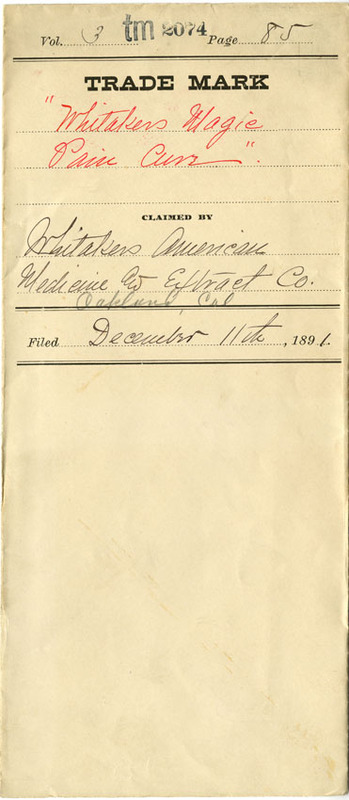 Vol. 3 tm 2074 Page 85
TRADE MARK
"Whitakers Magic
Pain Cure".
CLAIMED BY
Whitakers American
Medicine & Extract Co.
Oakland, Cal
Filed December 11th, 1891.